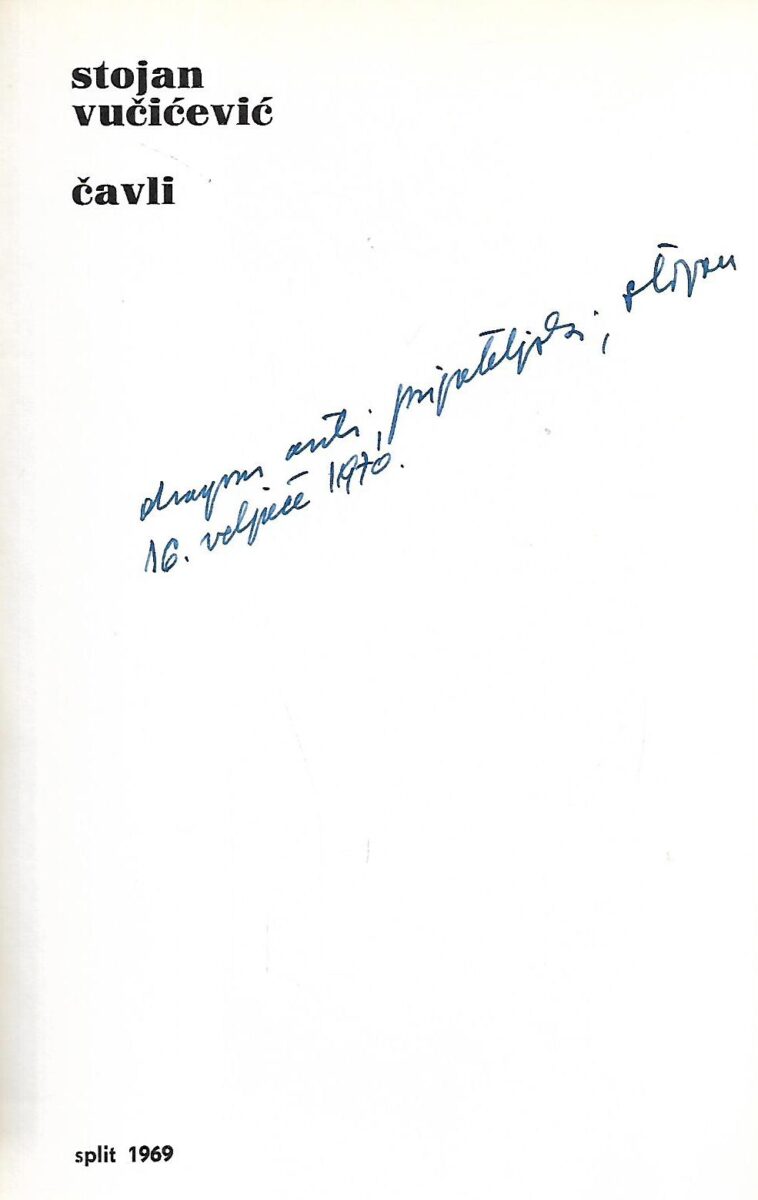 stojan
vučićević
čavli
dragom anti, prijateljski, stojan
16. veljače 1970.
split 1969